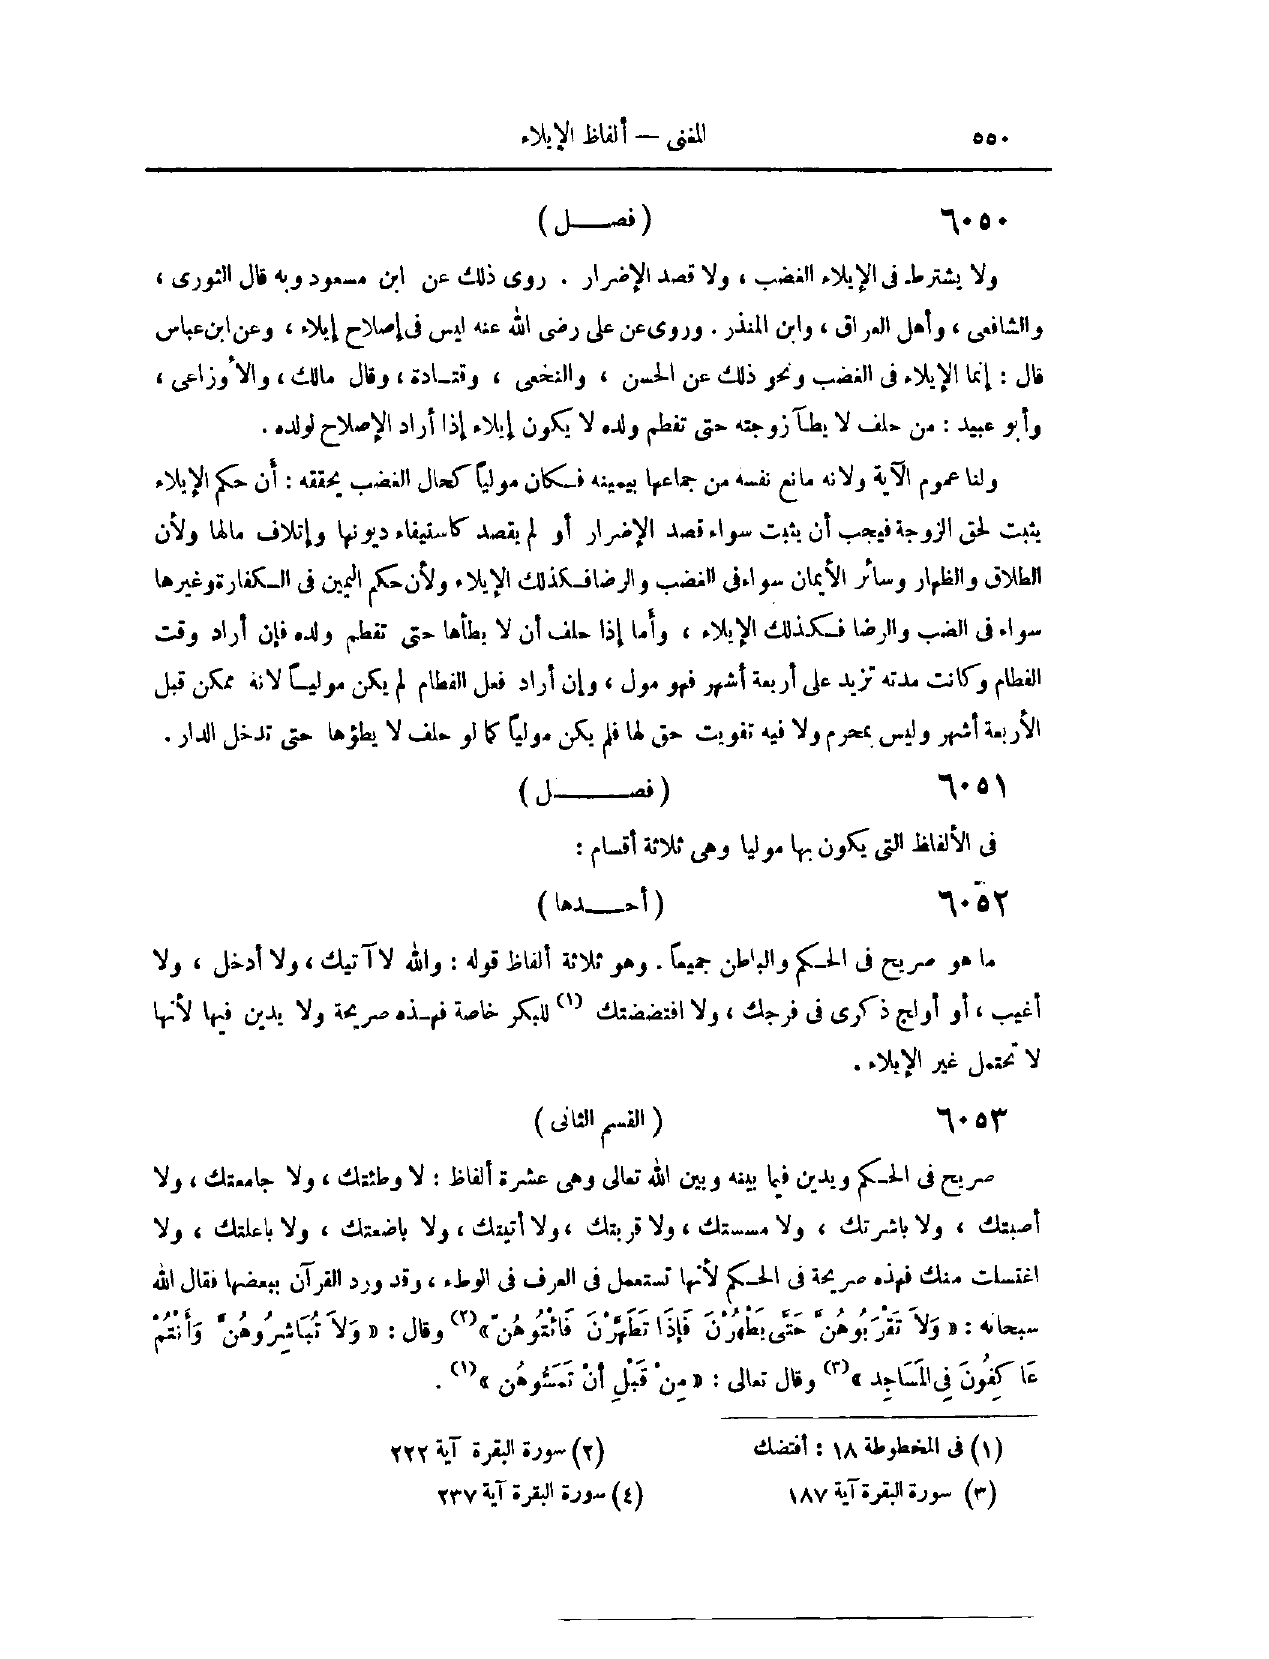 ٥٥٠ المغنى — ألفاظ الإيلاء
٦٠٥٠ ( فصـــل )
ولا يشترط فى الإيلاء الغضب ، ولا قصد الإضرار . روى ذلك عن ابن مسعود وبه قال الثورى ،
والشافعى ، وأهل العراق ، وابن المنذر . وروى عن على رضى الله عنه ليس فى إصلاح إيلاء ، وعن ابن عباس
قال : إنما الإيلاء فى الغضب ونحو ذلك عن الحسن ، والنخعى ، وقتـادة ، وقال مالك ، والأوزاعى ،
وأبو عبيد : من حلف لا يطأ زوجته حتى تفطم ولده لا يكون إيلاء إذا أراد الإصلاح لولده .
ولنا عموم الآية ولانه مانع نفسه من جماعها بيمينه فـكان مولياً كحال الغضب يحققه : أن حكم الإيلاء
يثبت لحق الزوجة فيجب أن يثبت سواء قصد الإضرار أو لم يقصد كاستيفاء ديونها وإتلاف مالها ولأن
الطلاق والظهار وسائر الأيمان سواء فى الغضب والرضا فـكذلك الإيلاء ولأن حكم اليمين فى الـكفارة وغيرها
سواء فى الضب والرضا فـكذلك الإيلاء ، وأما إذا حلف أن لا يطأها حتى تفطم ولده فإن أراد وقت
الفطام وكانت مدته تزيد على أربعة أشهر فهو مول ، وإن أراد فعل الفطام لم يكن موليـاً لانه ممكن قبل
الأربعة أشهر وليس بمحرم ولا فيه تفويت حق لها فلم يكن مولياً كما لو حلف لا يطؤها حتى تدخل الدار .
٦٠٥١ ( فصـــــل )
فى الألفاظ التى يكون بها موليا وهى ثلاثة أقسام :
٦٠٥٢ ( أحــدها )
ما هو صريح فى الحـكم والباطن جميعاً . وهو ثلاثة ألفاظ قوله : والله لا آتيك ، ولا أدخل ، ولا
أغيب ، أو أولج ذكرى فى فرجك ، ولا افتضضتك (١) للبكر خاصة فهـذه صريحة ولا يدين فيها لأنها
لا تحتمل غير الإيلاء .
٦٠٥٣ ( القسم الثانى )
صريح فى الحـكم ويدين فيما بينه وبين الله تعالى وهى عشرة ألفاظ : لا وطئتك ، ولا جامعتك ، ولا
أصبتك ، ولا باشرتك ، ولا مسستك ، ولا قربتك ، ولا أتيتك ، ولا باضعتك ، ولا باعلتك ، ولا
اغتسلت منك فهذه صريحة فى الحـكم لأنها تستعمل فى العرف فى الوطء ، وقد ورد القرآن ببعضها فقال الله
سبحانه : « وَلاَ تَقْرَبُوهُنَّ حَتَّى يَطْهُرْنَ فَإِذَا تَطَهَّرْنَ فَائْتُوهُنَّ »(٢) وقال : « وَلاَ تُبَاشِرُوهُنَّ وَأَنْتُمْ
عَاكِفُونَ فِى الْمَسَاجِدِ »(٣) وقال تعالى : « مِنْ قَبْلِ أَنْ تَمَسُّوهُن »(١) .
(١) فى المخطوطة ١٨ : أفتضك (٢) سورة البقرة آية ٢٢٢
(٣) سورة البقرة آية ١٨٧ (٤) سورة البقرة آية ٢٣٧